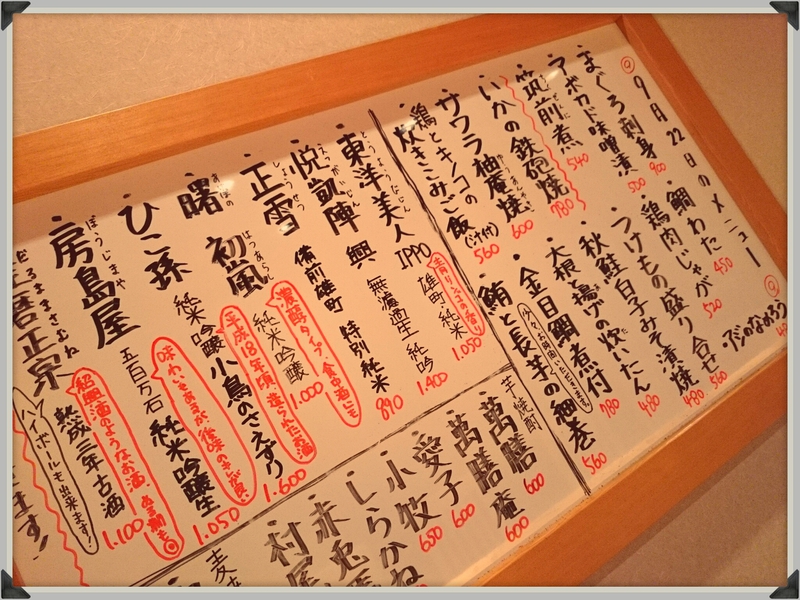 ◎9月22日のメニュー◎
まぐろ刺身 900 500
アボカド味噌漬
筑前煮 540
いかの鉄砲焼 780
サワラ柚庵焼 600
ゆうあん
鶏とキノコの
炊きこみご飯(汁付) 560
アジのなめろう
鯛わた 450
鶏肉じゃが 520
つけもの盛り合せ 560
秋鮭白子みそ漬焼 480
大根と揚げの炊いたん 480
金目鯛煮付 780
少々お時間いただきます
鮪と長芋の細巻 560
東洋美人 IPPO 雄町 純米 1.050
悦凱陣 興 無濾過生 純吟 1.400
正雪 備前雄町 特別純米 890
しょうせつ
曙 初風 純米吟醸 1.000
あけぼの はつあらし
濃醇タイプ・食中酒にも
ひこ孫 純米吟醸 小鳥のさえずり 1.600
平成18年頃造られたお酒
房島屋 五百万石 純米吟醸生 1.050
ぼうじまや
味わいもあるが後味のキレが良い
正宗
まさむね
熟成三年古酒 1.100
紹興酒のようなお酒
ハイボールも出来ます!
芋焼酎
萬膳 600
萬膳庵 600
愛子 600
小牧 650
しらかね
赤兎馬
村尾
麦